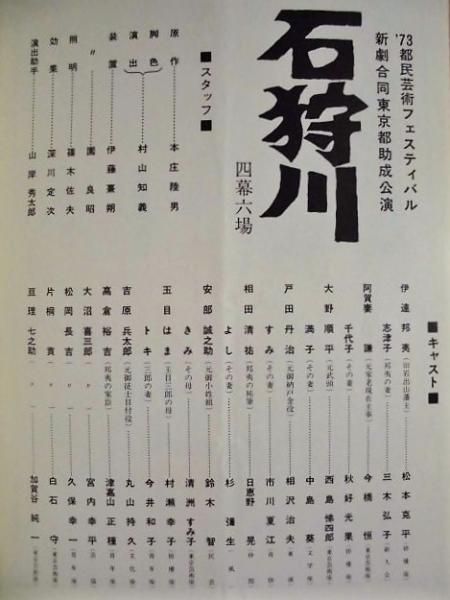 '73都民芸術フェスティバル
新劇合同東京都助成公演
石狩川
四幕六場
■スタッフ■
原作……本庄陸男
脚色
演出 村山知義
装置……伊藤熹朔
〃……園良昭
照明……篠木佐夫
効果……深川定次
演出助手……山岸秀太郎
■キャスト■
伊達邦夷(旧岩出山藩主)……松本克平
志津子(邦夷の妻)……三木弘子
阿賀妻謙(元家老現在主事)……今橋恒
千代子(その妻)……秋好光果
大野順平(元武頭)……西島悌四郎
満子(その妻)……中島葵
戸田丹治(元御納戸金役)……相沢治夫
すみ(その妻)……市川夏江
相田清祐(邦夷の祐筆)……日恵野晃
よし(その妻)……杉彌生
安部誠之助(元御小姓組)……鈴木智
きみ(その母)……清洲すみ子
玉目はま(主目三郎の母)……村瀬幸子
トキ(三郎の妻)……今井和子
吉原兵太郎(元御徒士目付役)……丸山持久
高倉裕吉(邦夷の家臣)……津高山正種
大沼喜三郎(〃)……宮内幸平
松岡長吉(〃)……久保幸一
片桐貢(〃)……白石守
亘理七之助(〃)……加賀谷純一